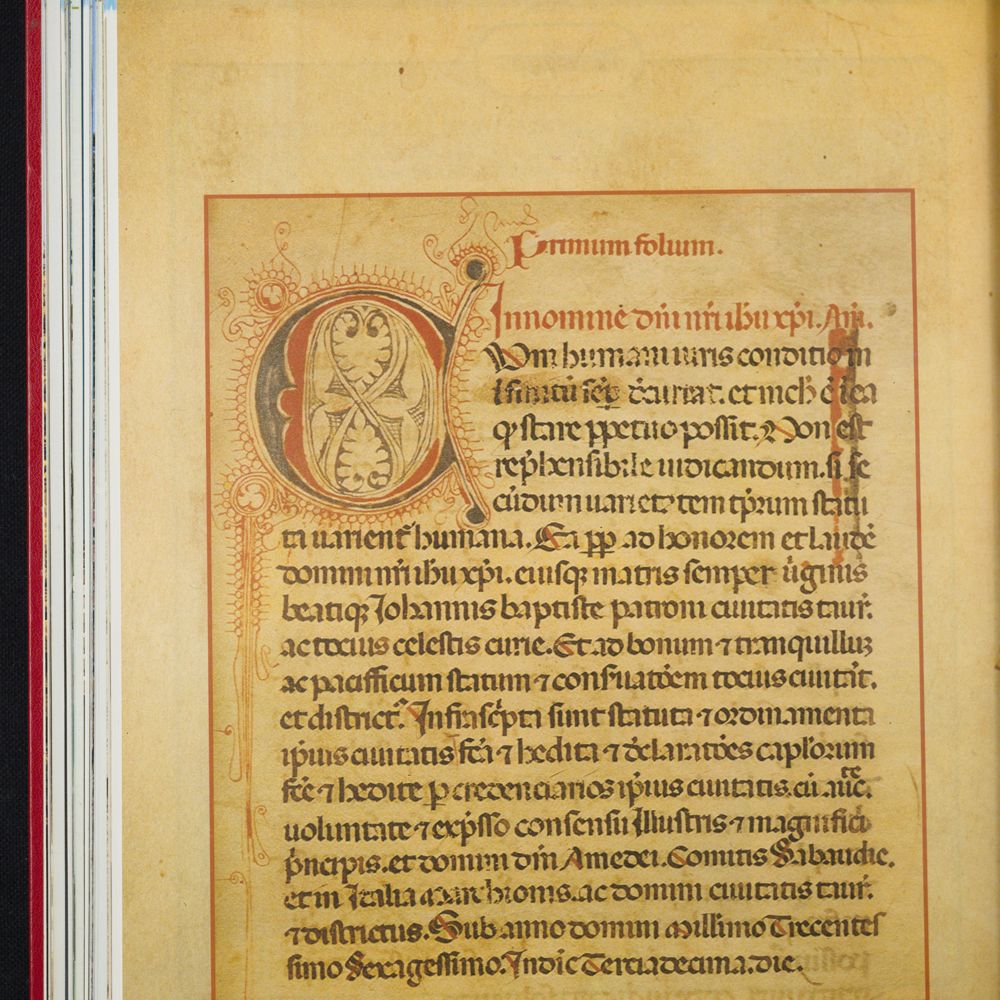 Primum folium.
In nomine dñi nri ihu xpi. Am.
Cum humani iuris conditio in
et in ea
q stare ppetuo possit. Non est
rephensibile iudicandum. si se
cūdum uarietatem tp̄rum statu
ta uarient humana. Ea pp ad honorem et laudē
domini nri ihu xpi. eiusq matris semper uginis
beatiq Johannis baptiste patroni ciuitatis taur.
ac tocius celestis curie. Et ad bonum ⁊ tranquillu
ac pacifficum statum ⁊ consuatoem tocius ciuitat.
et district. Infrascpta sunt statuta ⁊ ordinamenta
ipius ciuitatis fca ⁊ hedita ⁊ declaratoes caplorum
fce ⁊ hedite p credenciarios ipius ciuitatis. cū auc̄te.
uoluntate ⁊ expsso consensu Illustris ⁊ magnifici
pncipis. et domini dñi Amedei. Comitis Sabaudie.
et in Italia Marchionis. ac domini ciuitatis taur.
⁊ districtus. Sub anno domini Millimo Trecentes
simo Sexagessimo. Indic Terciadecima. die.